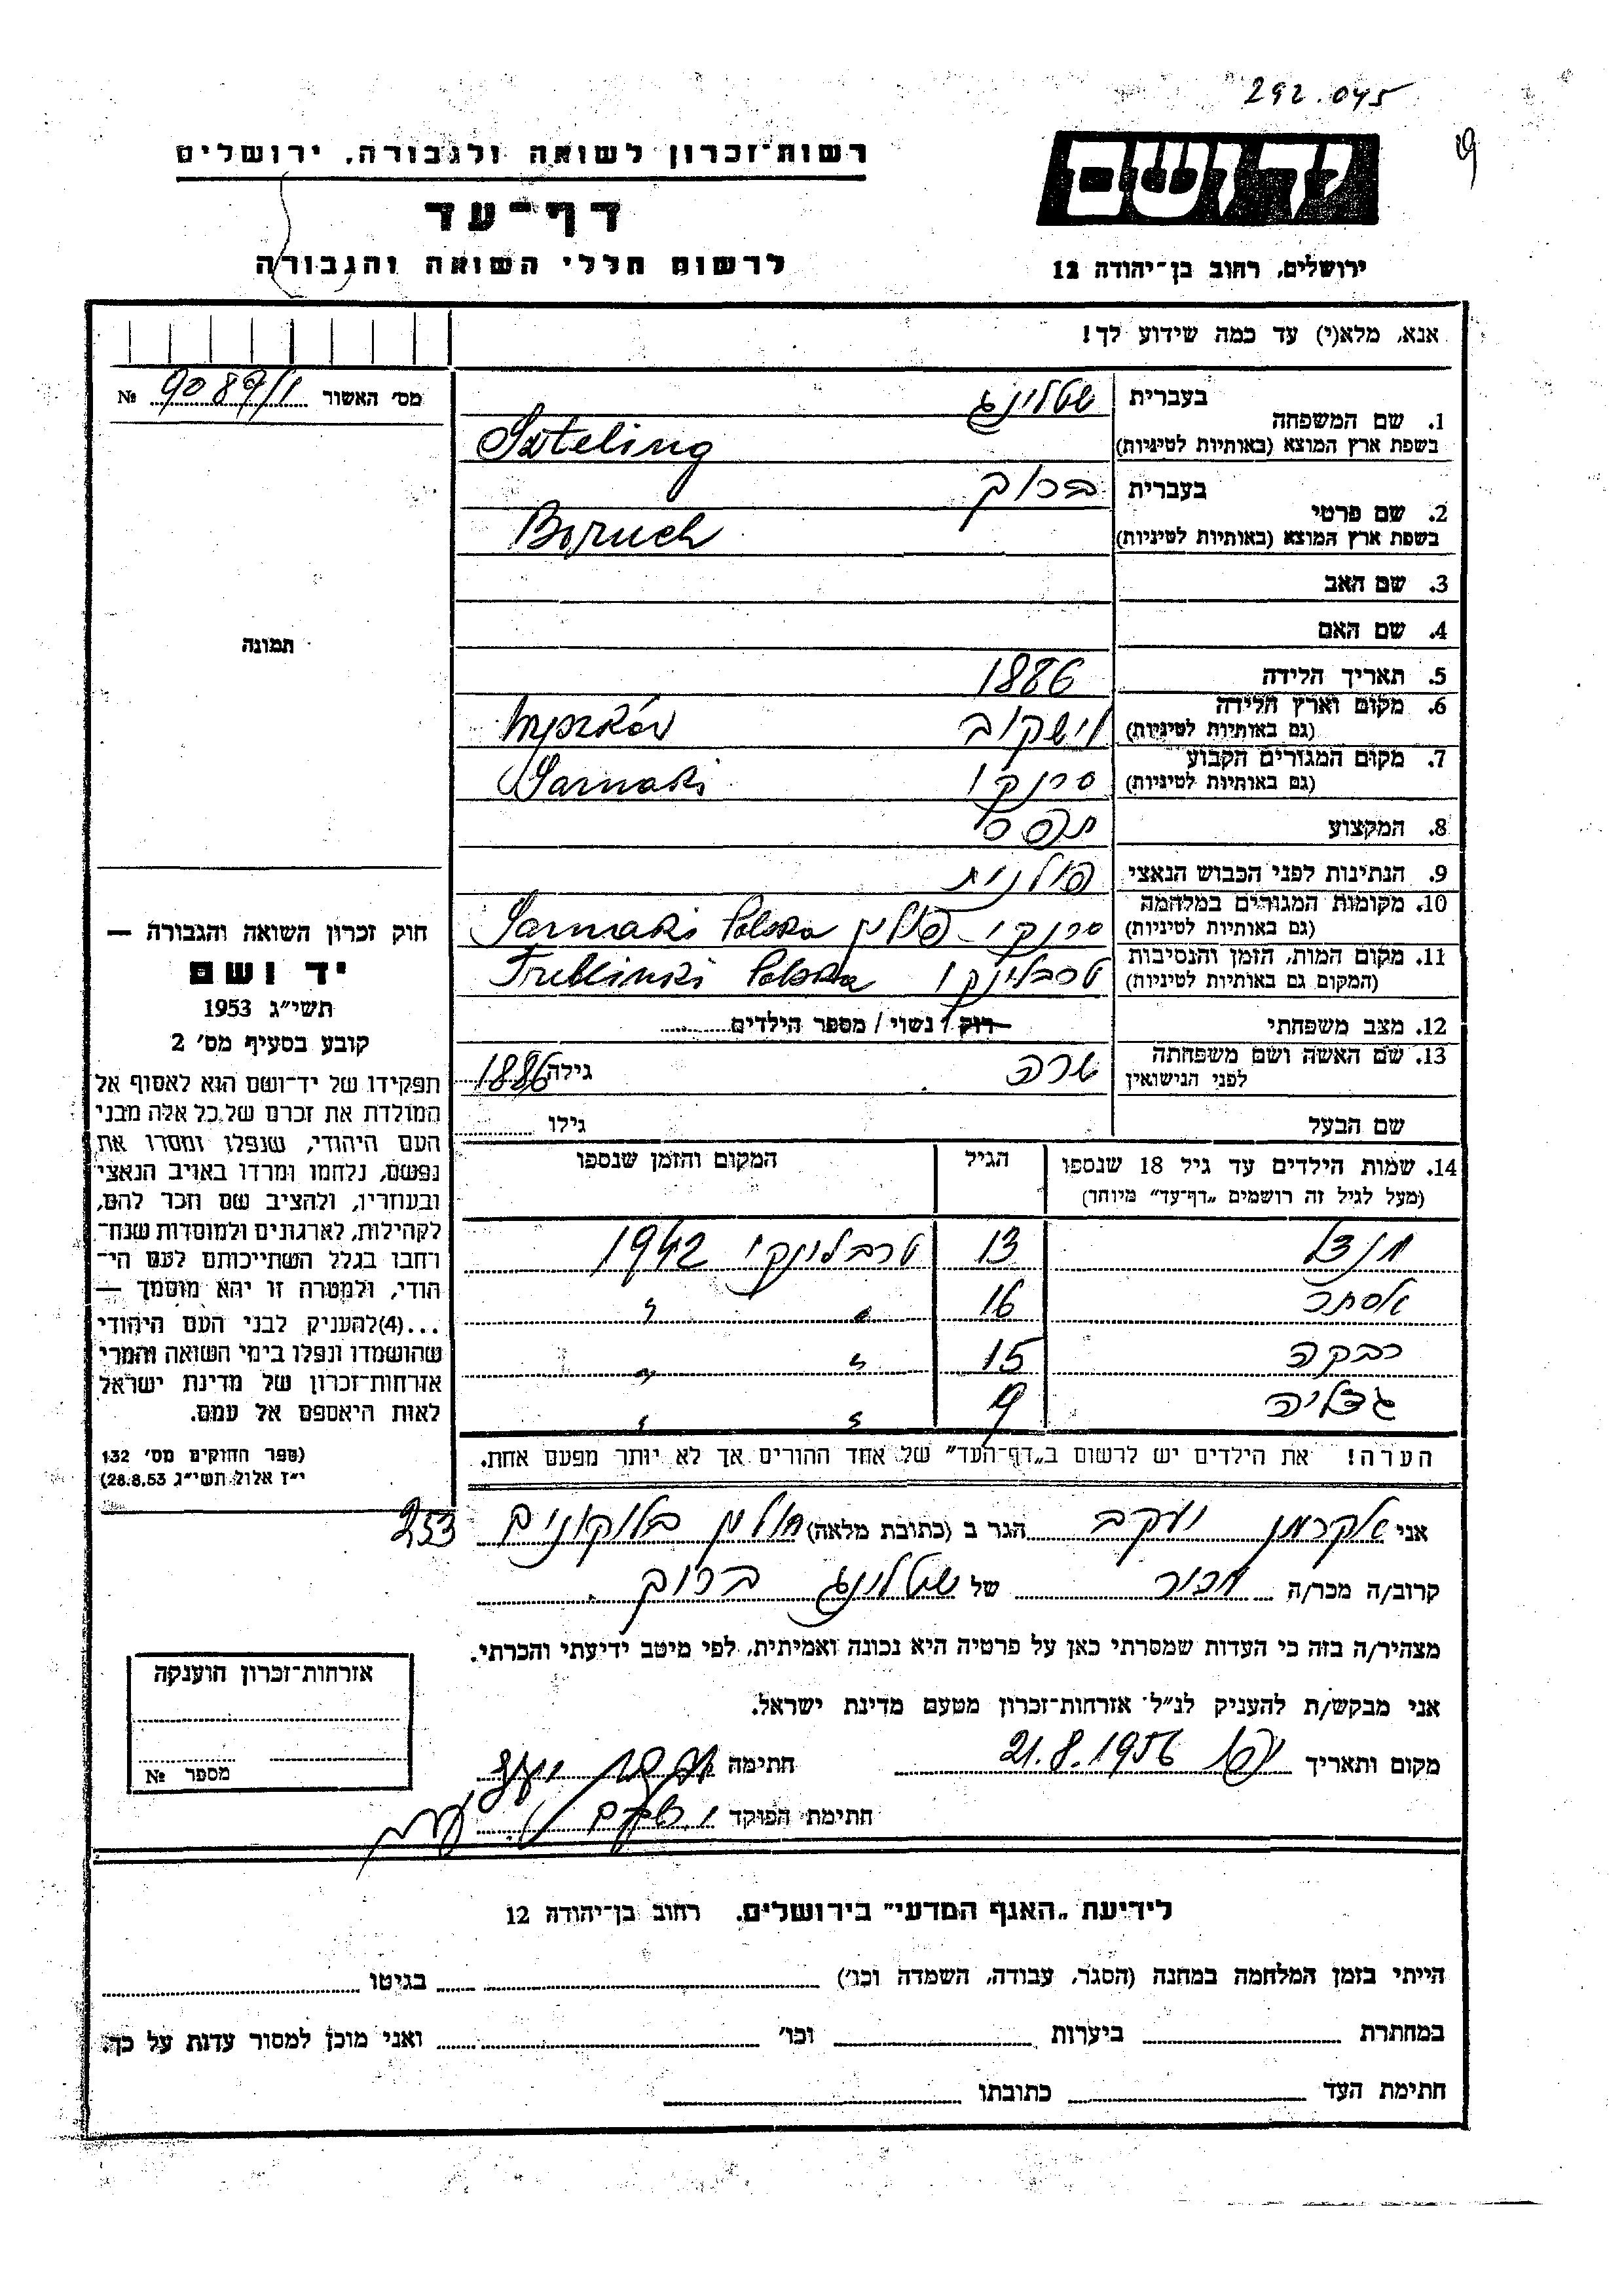 292.045
יד ושם
ירושלים, רחוב בן-יהודה 12
רשות-זכרון לשואה ולגבורה, ירושלים
דף-עד
לרשום חללי השואה והגבורה
אנא, מלא(י) עד כמה שידוע לך!
מס' האשור 9089/1 №
תמונה
1. שם המשפחה בעברית שטלינג
בשפת ארץ המוצא (באותיות לטיניות) Szteling
2. שם פרטי בעברית ברוך
בשפת ארץ המוצא (באותיות לטיניות) Boruch
3. שם האב
4. שם האם
5. תאריך הלידה 1886
6. מקום וארץ הלידה וישקוב Wyszków
(גם באותיות לטיניות)
7. מקום המגורים הקבוע סרנקי Sarnaki
(גם באותיות לטיניות)
8. המקצוע
9. הנתינות לפני הכבוש הנאצי פולנית
10. מקומות המגורים במלחמה סרנקי - פולין Sarnaki Polska
(גם באותיות לטיניות)
11. מקום המות, הזמן והנסיבות טרבלינקי Treblinki Polska
(המקום גם באותיות לטיניות)
12. מצב משפחתי רוק / נשוי / מספר הילדים
13. שם האשה ושם משפחתה שרה גילה 1886
לפני הנישואין
שם הבעל גילו
14. שמות הילדים עד גיל 18 שנספו הגיל המקום והזמן שנספו
(מעל לגיל זה רושמים „דף-עד" מיוחד)
13 טרבלינקי 1942
אסתר 16 " "
רבקה 15 " "
גדליה 9 " "
הערה! את הילדים יש לרשום ב„דף-העד" של אחד ההורים אך לא יותר מפעם אחת.
חוק זכרון השואה והגבורה —
יד ושם
תשי"ג 1953
קובע בסעיף מס' 2
תפקידו של יד-ושם הוא לאסוף אל
המולדת את זכרם של כל אלה מבני
העם היהודי, שנפלו ומסרו את
נפשם, נלחמו ומרדו באויב הנאצי
ובעוזריו, ולהציב שם וזכר להם,
לקהילות, לארגונים ולמוסדות שנח-
רחבו בגלל השתייכותם לעם הי-
הודי, ולמטרה זו יהא מוסמך —
...(4) להעניק לבני העם היהודי
שהושמדו ונפלו בימי השואה והמרי
אזרחות-זכרון של מדינת ישראל
לאות היאספם אל עמם.
(ספר החוקים מס' 132
י"ז אלול תשי"ג 28.8.53)
אני אקרמן יעקב הגר ב (כתובת מלאה) חולון בלוקונים 253
קרוב/ה מכר/ה מכיר של שטלינג ברוך
מצהיר/ה בזה כי העדות שמסרתי כאן על פרטיה היא נכונה ואמיתית, לפי מיטב ידיעתי והכרתי.
אני מבקש/ת להעניק לנ"ל אזרחות-זכרון מטעם מדינת ישראל.
מקום ותאריך יפו 21.8.1956 חתימה
חתימת הפוקד
אזרחות-זכרון הוענקה
מספר №
לידיעת „האגף המדעי" בירושלים. רחוב בן-יהודה 12
הייתי בזמן המלחמה במחנה (הסגר, עבודה, השמדה וכו') בגיטו
במחתרת ביערות וכו' ואני מוכן למסור עדות על כך.
חתימת העד כתובתו